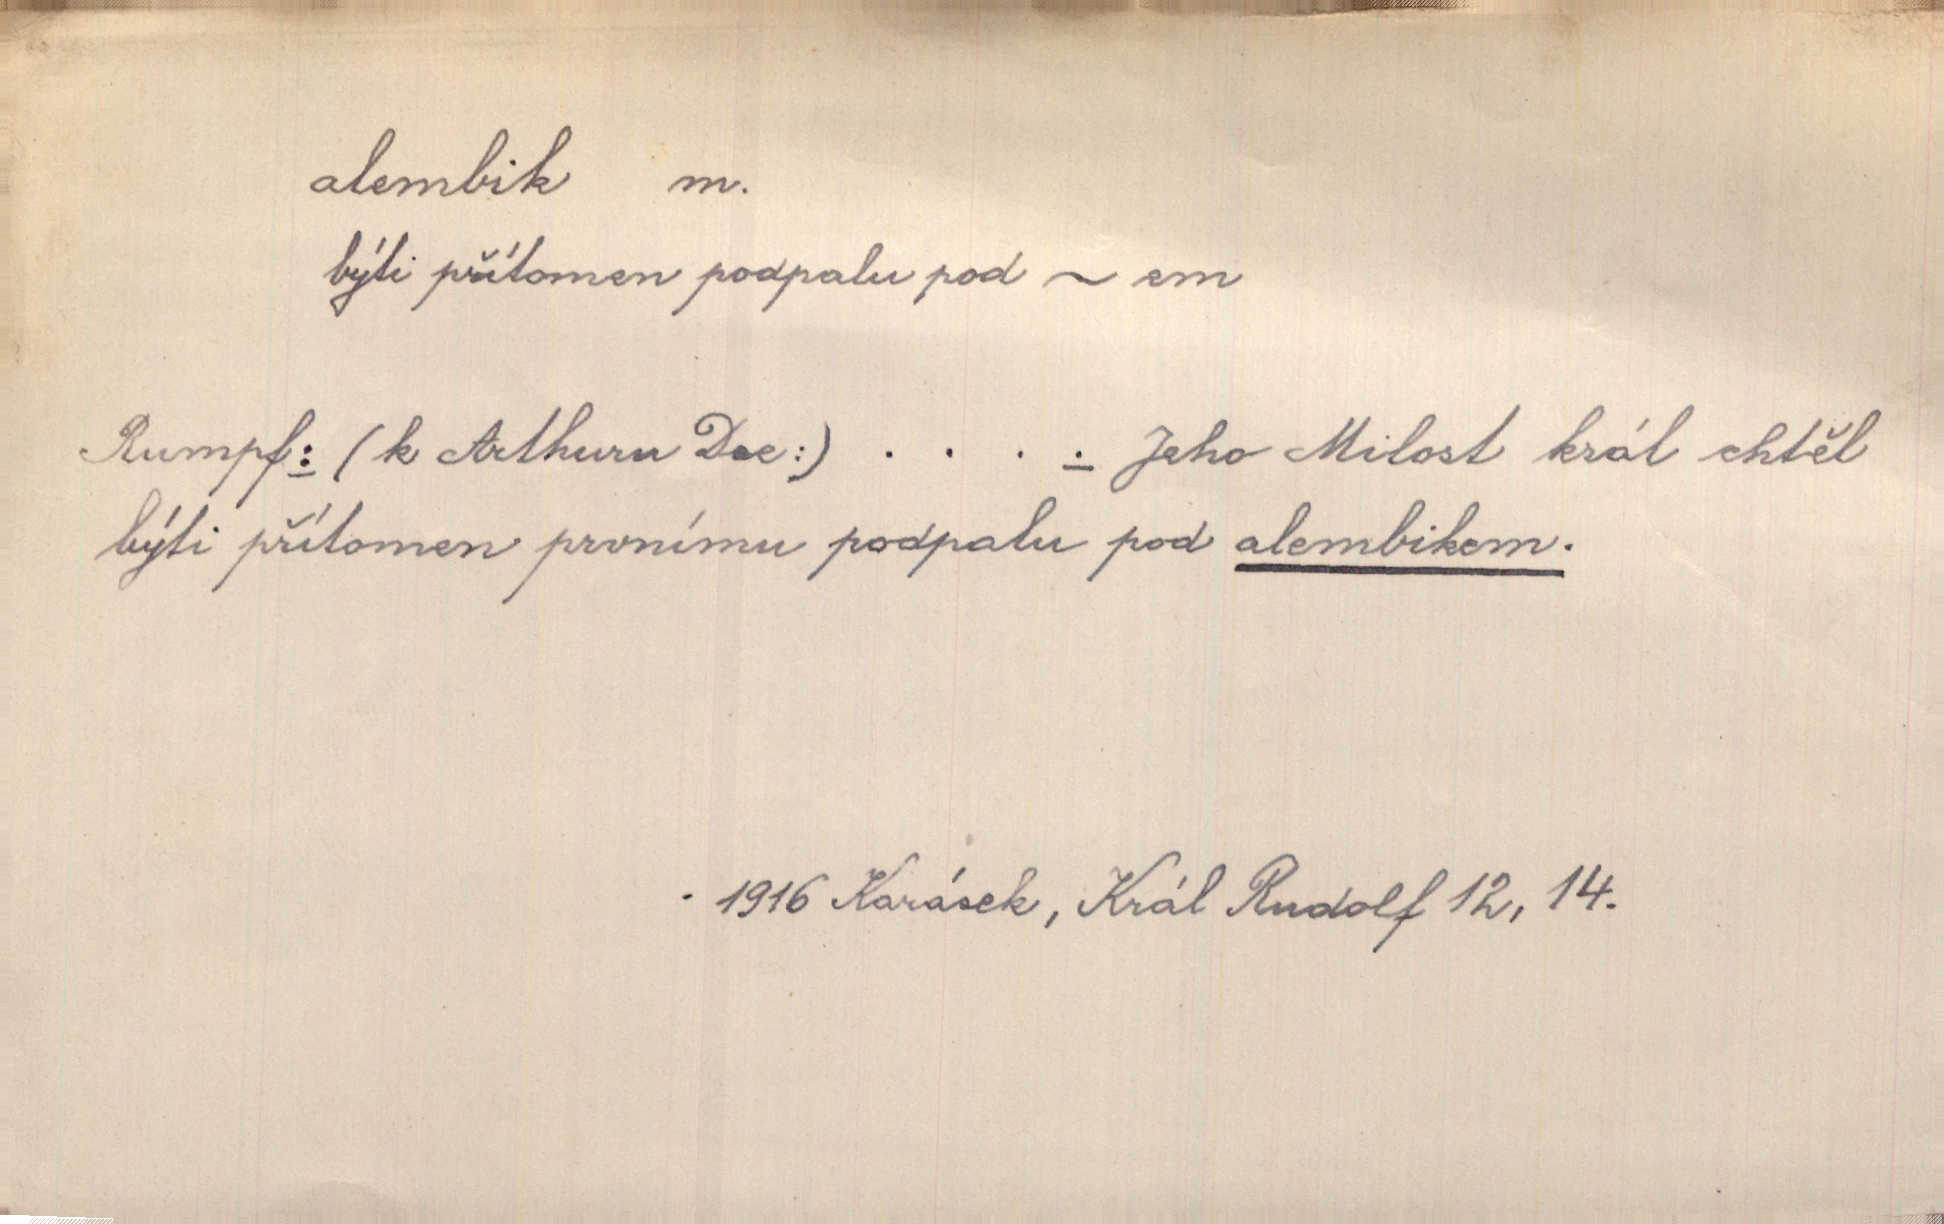 alembik m.
býti přítomen podpalu pod ~ em
Rumpf: (k Arthuru Dee:) . . . . Jeho Milost král chtěl
býti přítomen prvnímu podpalu pod alembikem.
1916 Karásek, Král Rudolf 12, 14.